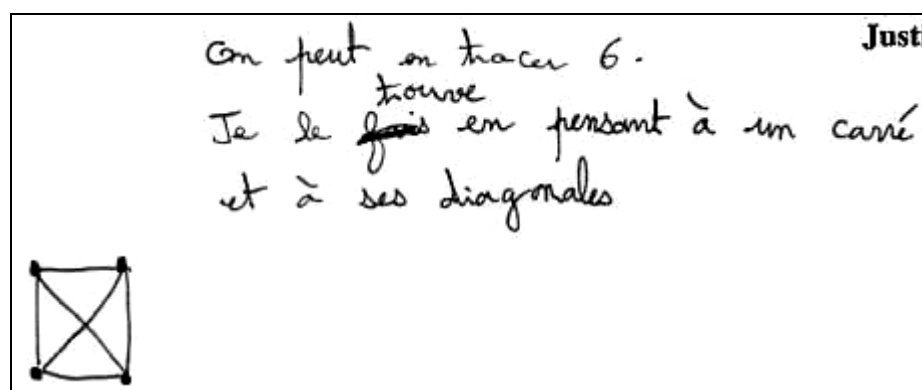 Justi
On peut en tracer 6.
trouve
Je le fais en pensant à un carré
et à ses diagonales